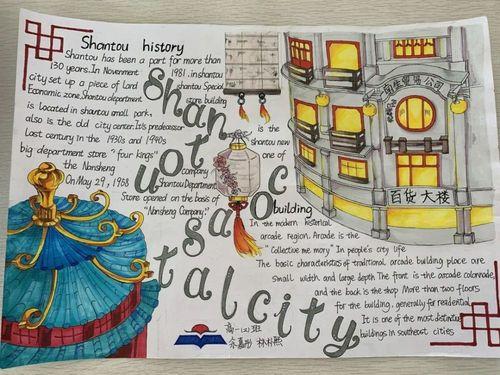 Shantou history
Shantou has been a part for more than
130 years. In Novenment 1981. in shantou
city set up a piece of lard shantou Special
Economic zone. Shantou department store building
is Located in shantou small park, is the
also is the old city center. It's predeassor shantou new
last century in the 1930s and 1940s one of
big department store "four kings" company
the Nansheng Shantou Department
On May 29, 1958
Store opened on the basis of
"Nansheng Company."
Shantou
coastal city
building
In the modern historical
arcade region. Arcade is the
"Collective me mory" In people's city life
The basic characteristics of traditional arcade building place are
small width and large depth The font is the arcade colonnade,
and the back is the shop More than two floors
for the building, generally for residential
It is one of the most distinctive
buildings in southeast cities
南生贸易公司
百货大楼